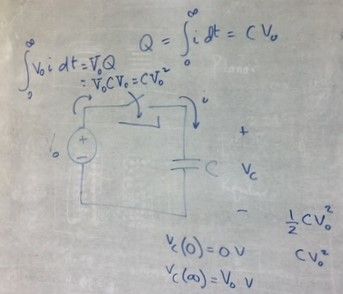 Q = ∫₀^∞ i dt = C V₀
∫₀^∞ V₀ i dt = V₀Q
= V₀CV₀ = CV₀²
i
+
+
−
o
C
V_C
−
½CV₀²
V_C(0) = 0 V
CV₀²
V_C(∞) = V₀ V